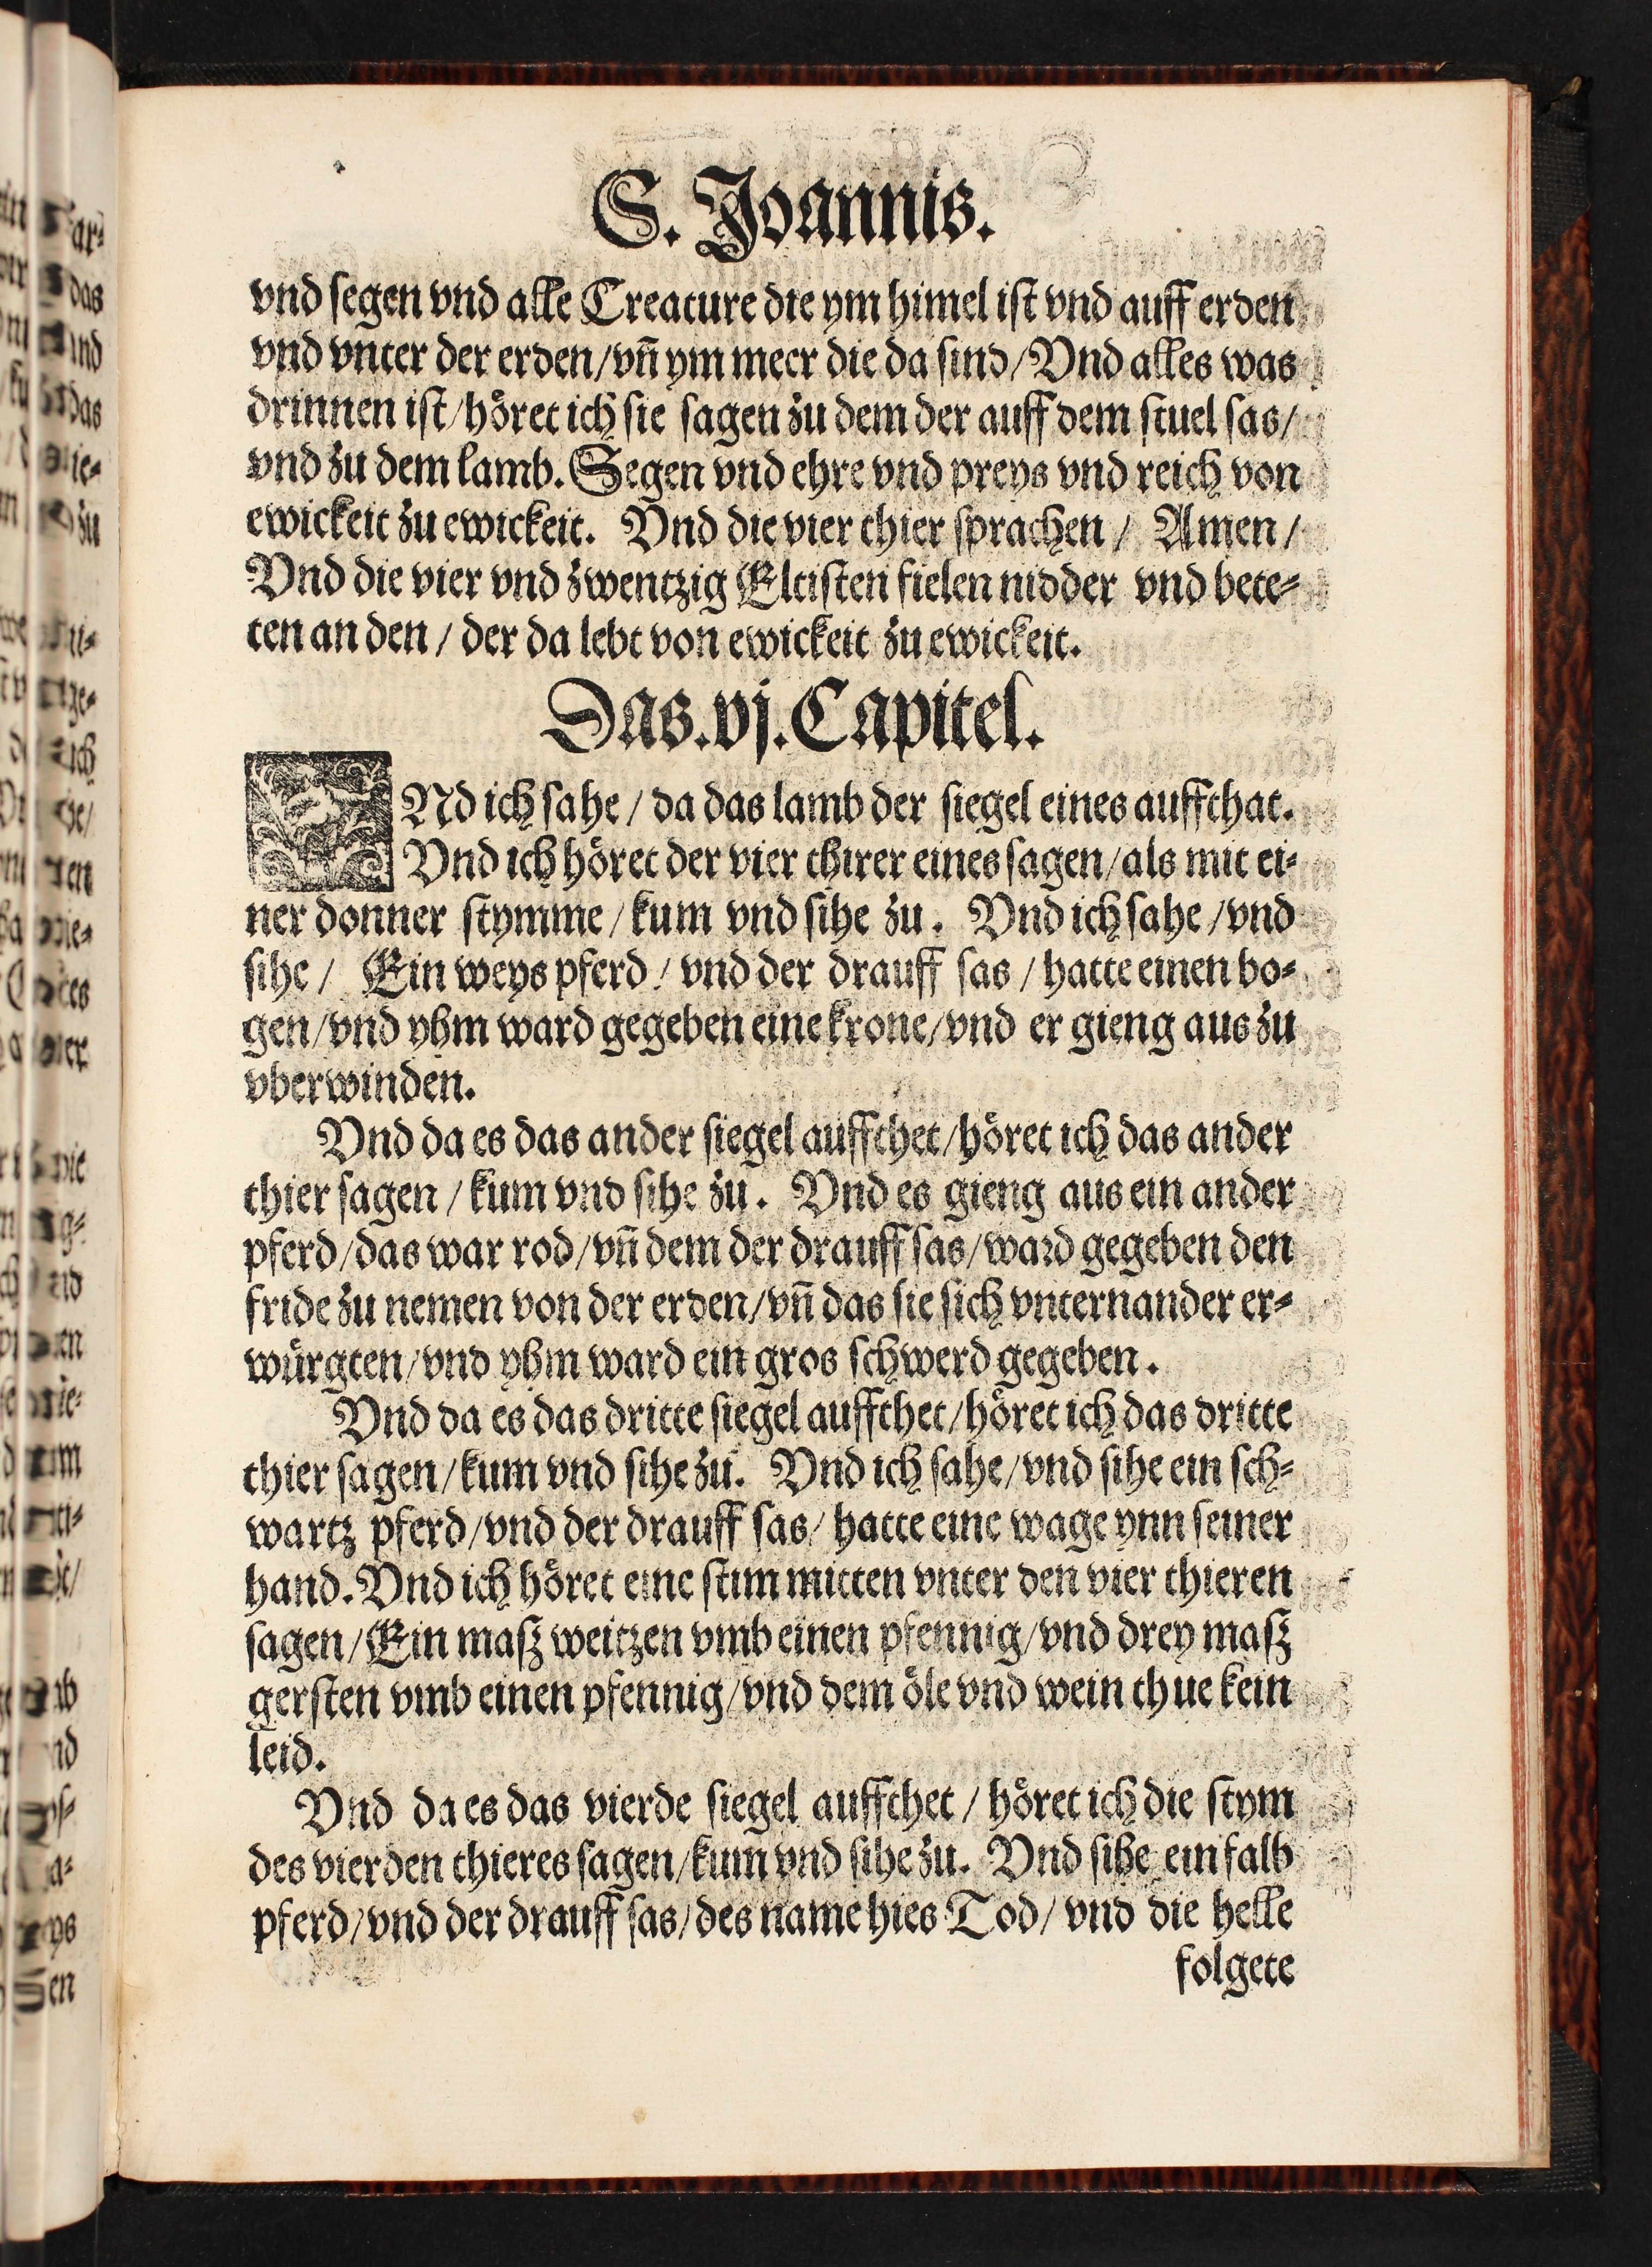 S. Joannis.
vnd segen vnd alle Creature die ym himel ist vnd auff erden
vnd vnter der erden/vñ ym meer die da sind/Vnd alles was
drinnen ist/höret ich sie sagen zu dem der auff dem stuel sas/
vnd zu dem lamb. Segen vnd ehre vnd preys vnd reich von
ewickeit zu ewickeit. Vnd die vier thier sprachen/ Amen/
Vnd die vier vnd zwentzig Eltisten fielen nidder vnd bete-
ten an den/ der da lebt von ewickeit zu ewickeit.
Das.vj.Capitel.
VNd ich sahe/ da das lamb der siegel eines auffthat.
Vnd ich höret der vier thirer eines sagen/als mit ei-
ner donner stymme/kum vnd sihe zu. Vnd ich sahe/vnd
sihe/ Ein weys pferd/ vnd der drauff sas/ hatte einen bo-
gen/vnd yhm ward gegeben eine krone/vnd er gieng aus zu
vberwinden.
Vnd da es das ander siegel auffthet/höret ich das ander
thier sagen/kum vnd sihe zu. Vnd es gieng aus ein ander
pferd/das war rod/vñ dem der drauff sas/ward gegeben den
fride zu nemen von der erden/vñ das sie sich vnternander er-
würgten/vnd yhm ward ein gros schwerd gegeben.
Vnd da es das dritte siegel auffthet/höret ich das dritte
thier sagen/kum vnd sihe zu. Vnd ich sahe/vnd sihe ein sch-
wartz pferd/vnd der drauff sas/ hatte eine wage ynn seiner
hand. Vnd ich höret eine stim mitten vnter den vier thieren
sagen/Ein masz weitzen vmb einen pfennig/vnd drey masz
gersten vmb einen pfennig/vnd dem öle vnd wein thue kein
leid.
Vnd da es das vierde siegel auffthet/ höret ich die stym
des vierden thieres sagen/kum vnd sihe zu. Vnd sihe ein falb
pferd/vnd der drauff sas/des name hies Tod/ vnd die helle
folgete